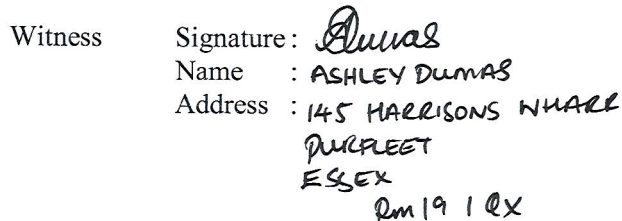 Witness Signature : ADumas
Name : ASHLEY DUMAS
Address : 145 HARRISONS WHARF
PURFLEET
ESSEX
RM19 1QX